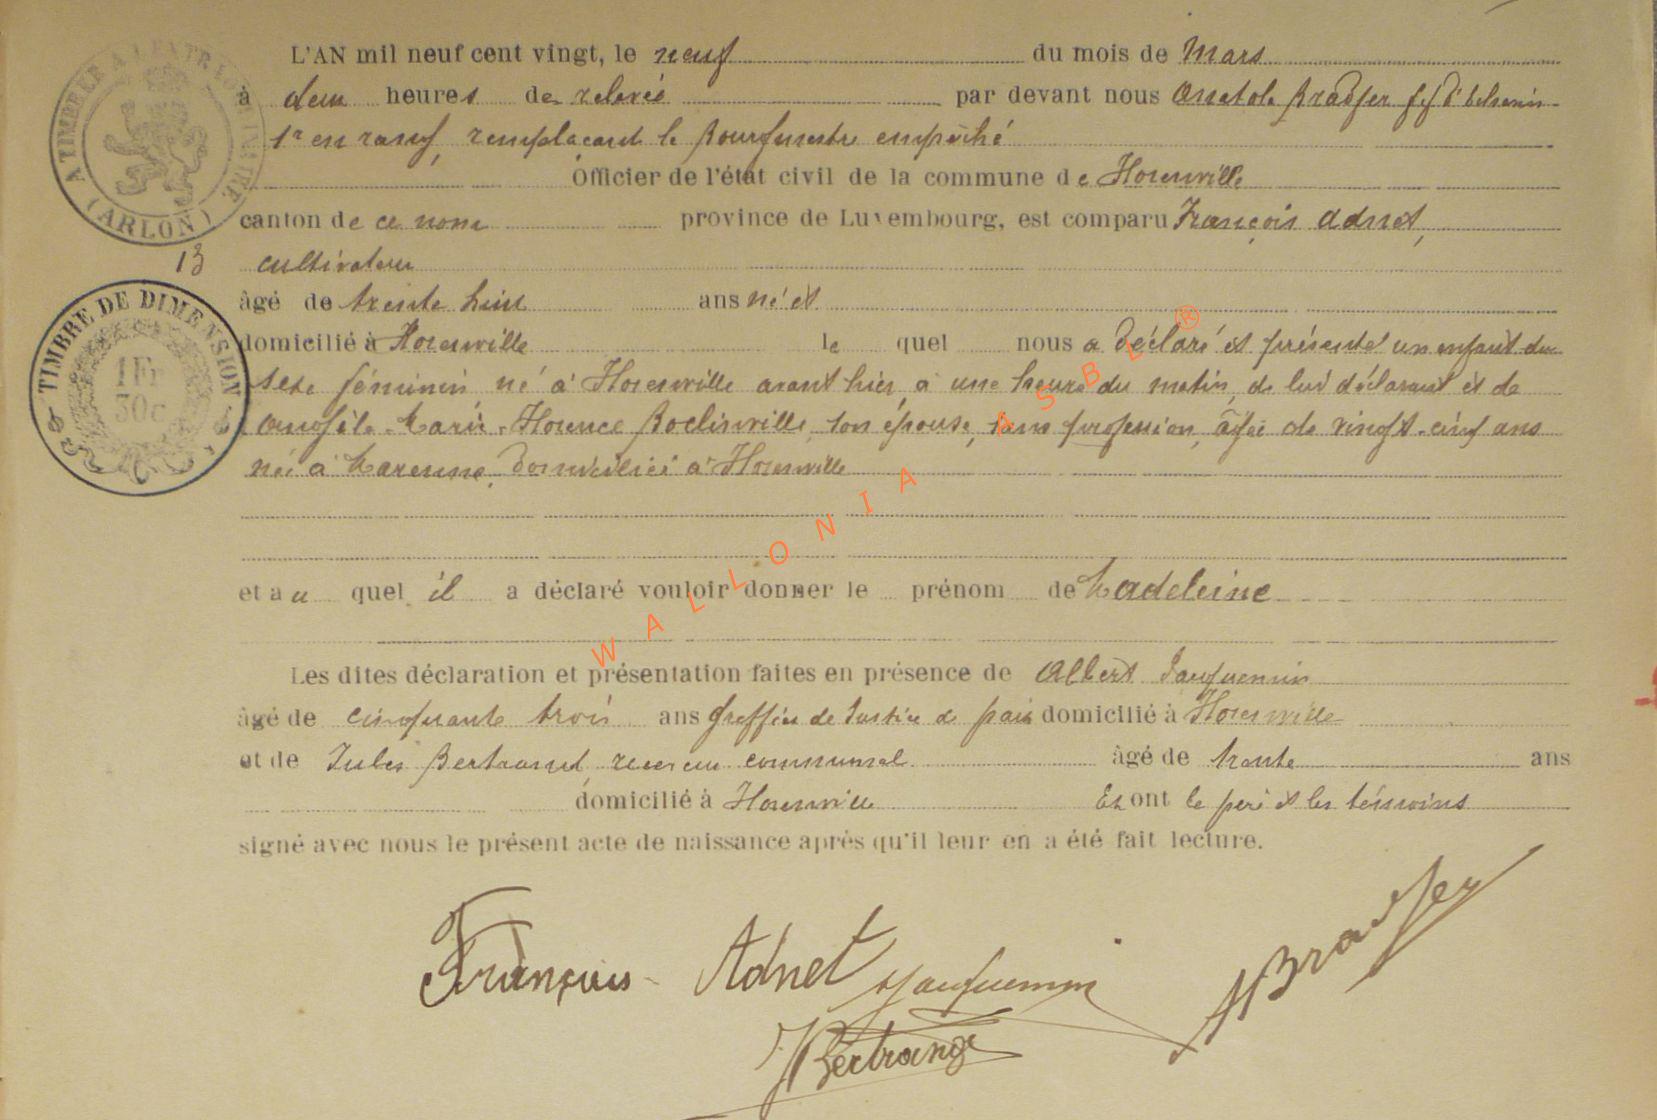 L'AN mil neuf cent vingt, le neuf du mois de Mars
à deux heures de relevée par devant nous Anatole Bradfer
1r en rang, remplaçant le Bourgmestre empêché
Officier de l'état civil de la commune de Houville
canton de ce nom province de Luxembourg, est comparu François Adnet,
13 cultivateur
âgé de trente huit ans né et
domicilié à le quel nous a déclaré et présenté un enfant du
sexe féminin, né à avant hier, à une heure du matin, de lui déclarant et de
Marie, son épouse, sans profession, âgée de vingt-cinq ans
née à Marenne, domiciliée à
et au quel il a déclaré vouloir donner le prénom de Madeleine
Les dites déclaration et présentation faites en présence de Albert Jauquemin
âgé de cinquante trois ans greffier de Justice de paix domicilié à
et de Jules Bertrand, receveur communal âgé de trente ans
domicilié à Et ont le père et les témoins
signé avec nous le présent acte de naissance après qu'il leur en a été fait lecture.
François Adnet
Jauquemin
ABradfer
JBertrand
(ARLON)
TIMBRE DE DIMENSION
1Fr
50c
WALLONIA ASBL ®